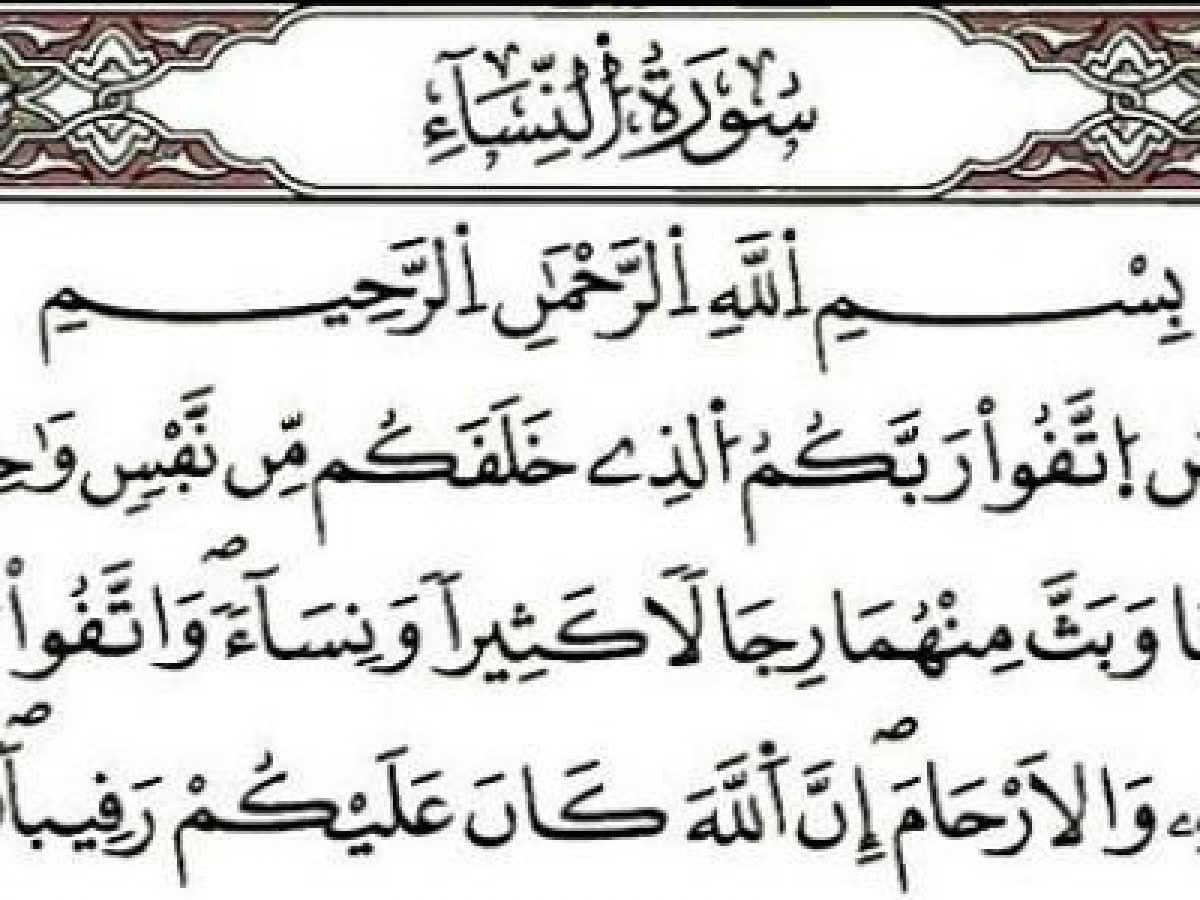 سُورَةُ اُ۬لنِّسَآءِ
بِسْمِ اِ۬للَّهِ اِ۬لرَّحْمَٰنِ اِ۬لرَّحِيمِ
اِ۪تَّقُواْ رَبَّكُمُ اُ۬لذِے خَلَقَكُم مِّن نَّفْسٖ
وَبَثَّ مِنْهُمَا رِجَالاٗ كَثِيراٗ وَنِسَآءٗۖ وَاتَّقُواْ
وَالَارْحَامَۖ إِنَّ اَ۬للَّهَ كَانَ عَلَيْكُمْ رَقِيباٗۖ